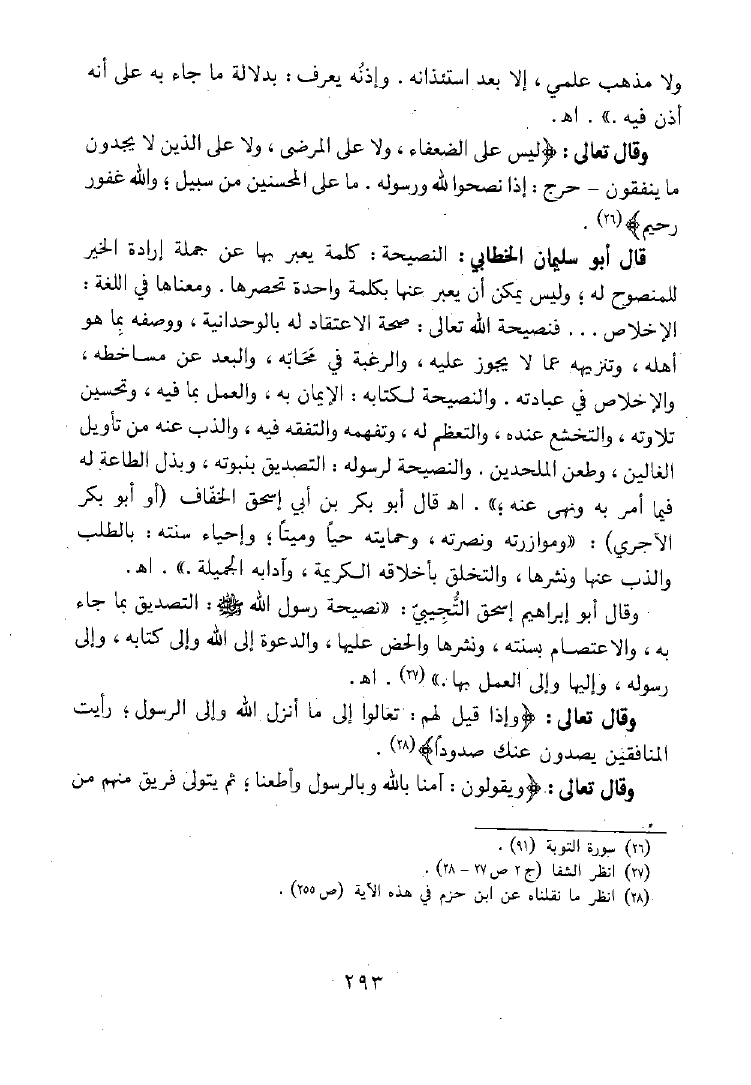 ولا مذهب علمي ، إلا بعد استئذانه . وإذنُه يعرف : بدلالة ما جاء به على أنه
أذن فيه .» . اهـ .
وقال تعالى : ﴿ليس على الضعفاء ، ولا على المرضى ، ولا على الذين لا يجدون
ما ينفقون – حرج : إذا نصحوا لله ورسوله . ما على المحسنين من سبيل ؛ والله غفور
رحيم﴾ (٢٦) .
قال أبو سليمان الخطابي : النصيحة : كلمة يعبر بها عن جملة إرادة الخير
للمنصوح له ؛ وليس يمكن أن يعبر عنها بكلمة واحدة تحصرها . ومعناها في اللغة :
الإخلاص ... فنصيحة الله تعالى : صحة الاعتقاد له بالوحدانية ، ووصفه بِما هو
أهله ، وتنزيهه عما لا يجوز عليه ، والرغبة في مَحَابّه ، والبعد عن مساخطه ،
والإخلاص في عبادته . والنصيحة لكتابه : الإيمان به ، والعمل بما فيه ، وتحسين
تلاوته ، والتخشع عنده ، والتعظم له ، وتفهمه والتفقه فيه ، والذب عنه من تأويل
الغالين ، وطعن الملحدين . والنصيحة لرسوله : التصديق بنبوته ، وبذل الطاعة له
فيما أمر به ونهى عنه ؛» . اهـ قال أبو بكر بن أبي إسحق الخفّاف (أو أبو بكر
الآجري) : «وموازرته ونصرته ، وحمايته حياً وميتاً ؛ وإحياء سنته : بالطلب
والذب عنها ونشرها ، والتخلق بأخلاقه الكريمة ، وآدابه الجميلة .» . اهـ .
وقال أبو إبراهيم إسحق التُّجيبيّ : «نصيحة رسول الله ﷺ : التصديق بما جاء
به ، والاعتصام بسنته ، ونشرها والحض عليها ، والدعوة إلى الله وإلى كتابه ، وإلى
رسوله ، وإليها وإلى العمل بها .» (٢٧) . اهـ .
وقال تعالى : ﴿وإذا قيل لهم : تعالوا إلى ما أنزل الله وإلى الرسول ؛ رأيت
المنافقين يصدون عنك صدوداً﴾ (٢٨) .
وقال تعالى : ﴿ويقولون : آمنا بالله وبالرسول وأطعنا ؛ ثم يتولى فريق منهم من
(٢٦) سورة التوبة (٩١) .
(٢٧) انظر الشفا (ج ٢ ص ٢٧ – ٢٨) .
(٢٨) انظر ما نقلناه عن ابن حزم في هذه الآية (ص ٢٥٥) .
٢٩٣